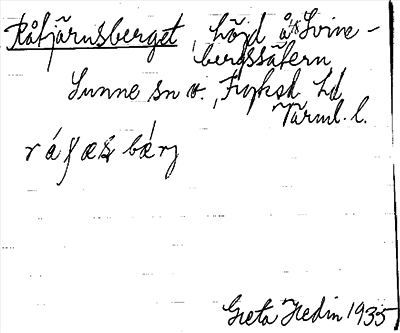 Råtjärnsberget, höjd å Svine-
bergssätern
Sunne sn v., Fryksd. hd
Värml. l.
Greta Hedin 1935